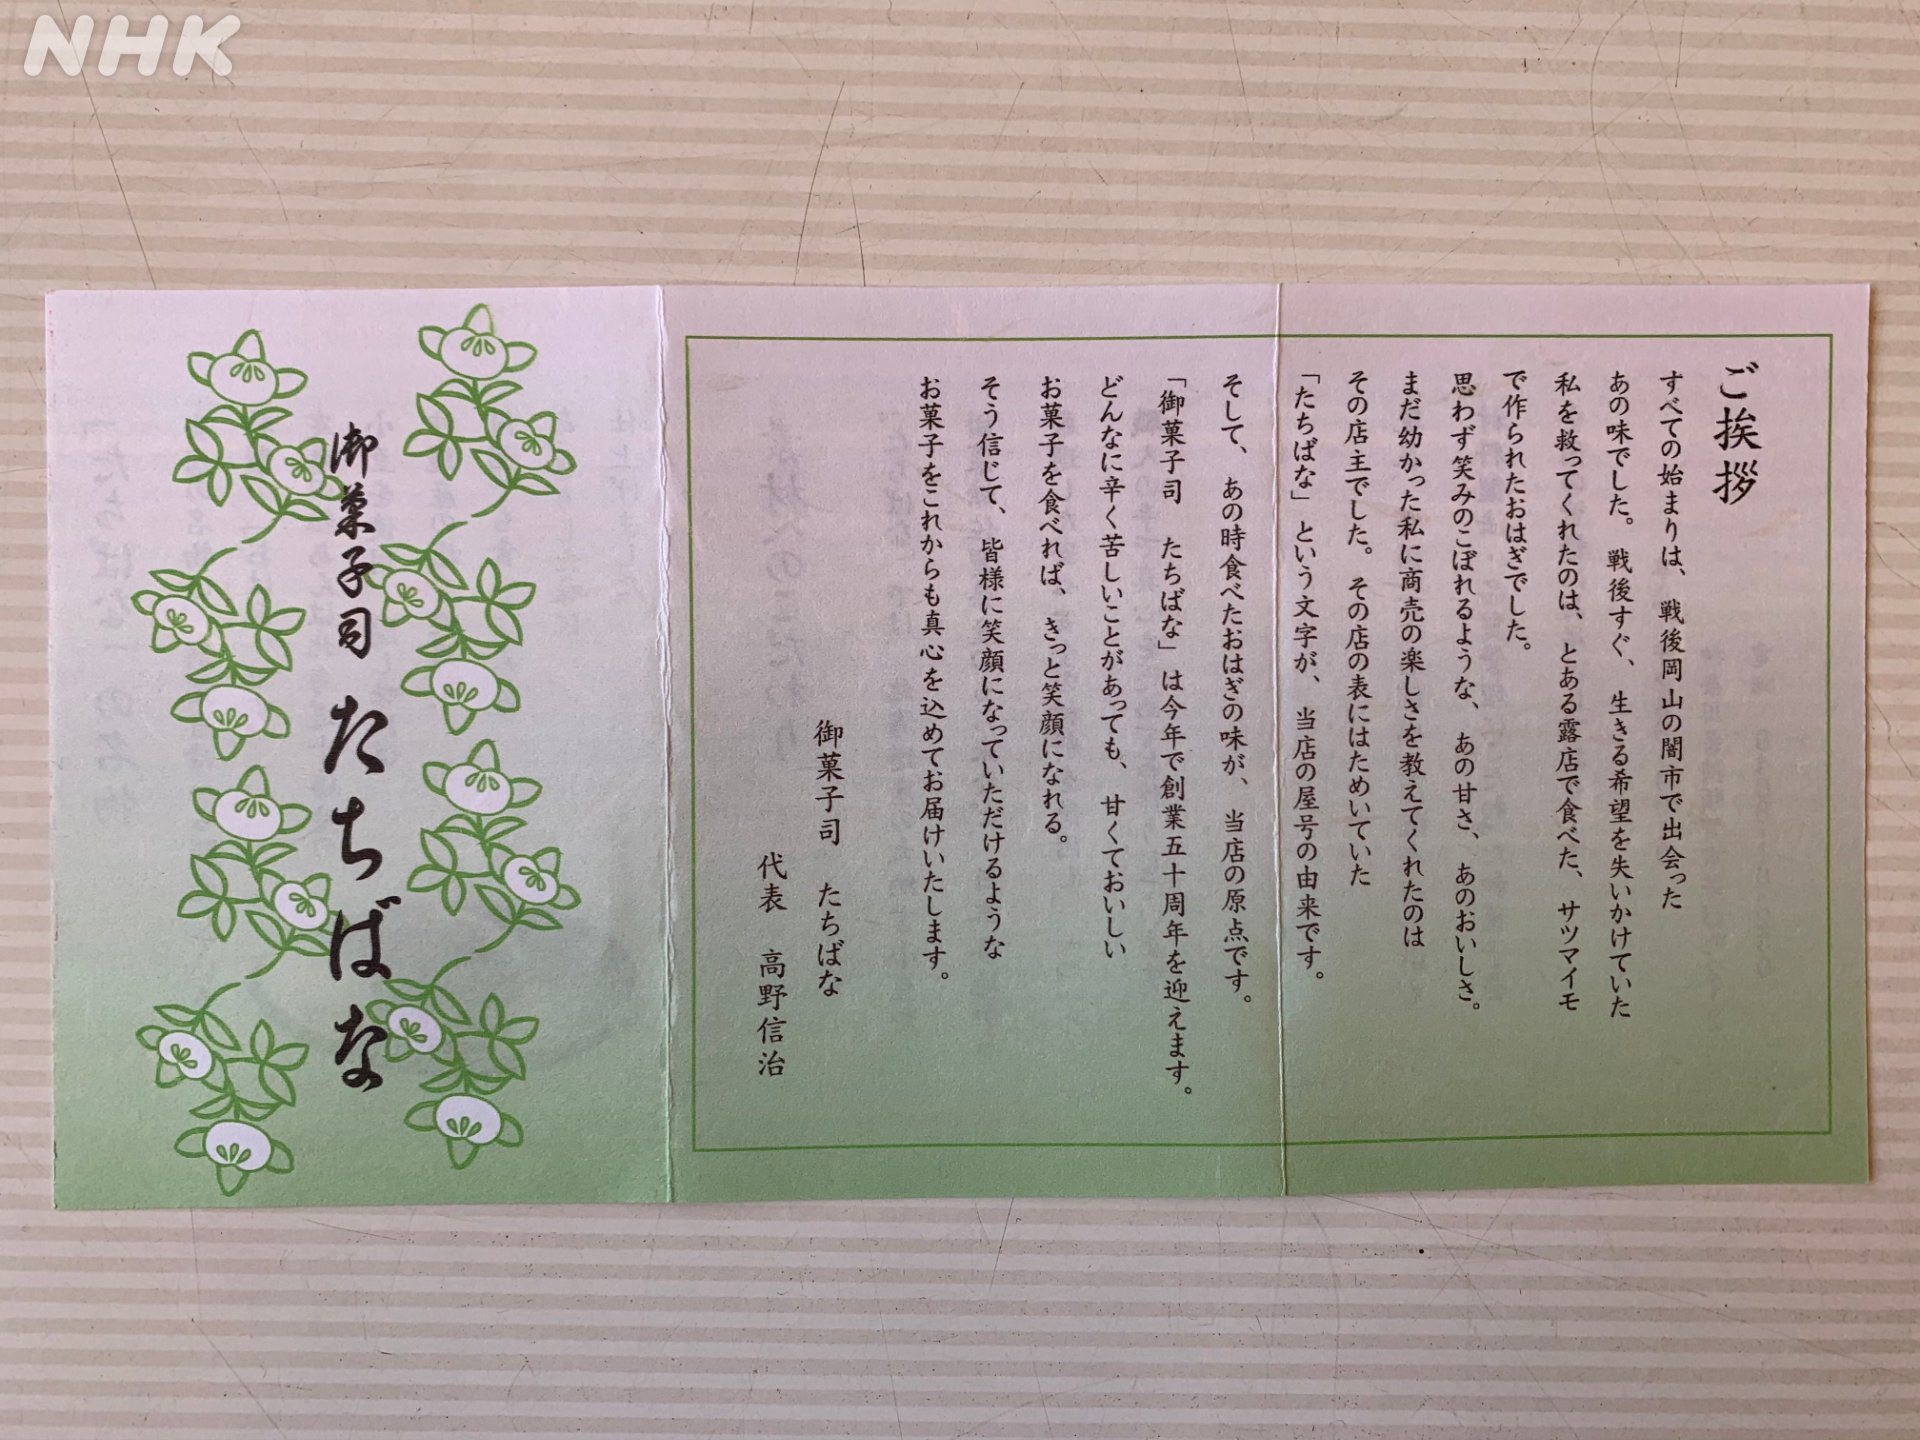 NHK
ご挨拶
すべての始まりは、戦後岡山の闇市で出会った
あの味でした。戦後すぐ、生きる希望を失いかけていた
私を救ってくれたのは、とある露店で食べた、サツマイモ
で作られたおはぎでした。
思わず笑みのこぼれるような、あの甘さ、あのおいしさ。
まだ幼かった私に商売の楽しさを教えてくれたのは
その店主でした。その店の表にはためいていた
「たちばな」という文字が、当店の屋号の由来です。
そして、あの時食べたおはぎの味が、当店の原点です。
「御菓子司　たちばな」は今年で創業五十周年を迎えます。
どんなに辛く苦しいことがあっても、甘くておいしい
お菓子を食べれば、きっと笑顔になれる。
そう信じて、皆様に笑顔になっていただけるような
お菓子をこれからも真心を込めてお届けいたします。
御菓子司　たちばな
代表　高野信治
御菓子司 たちばな